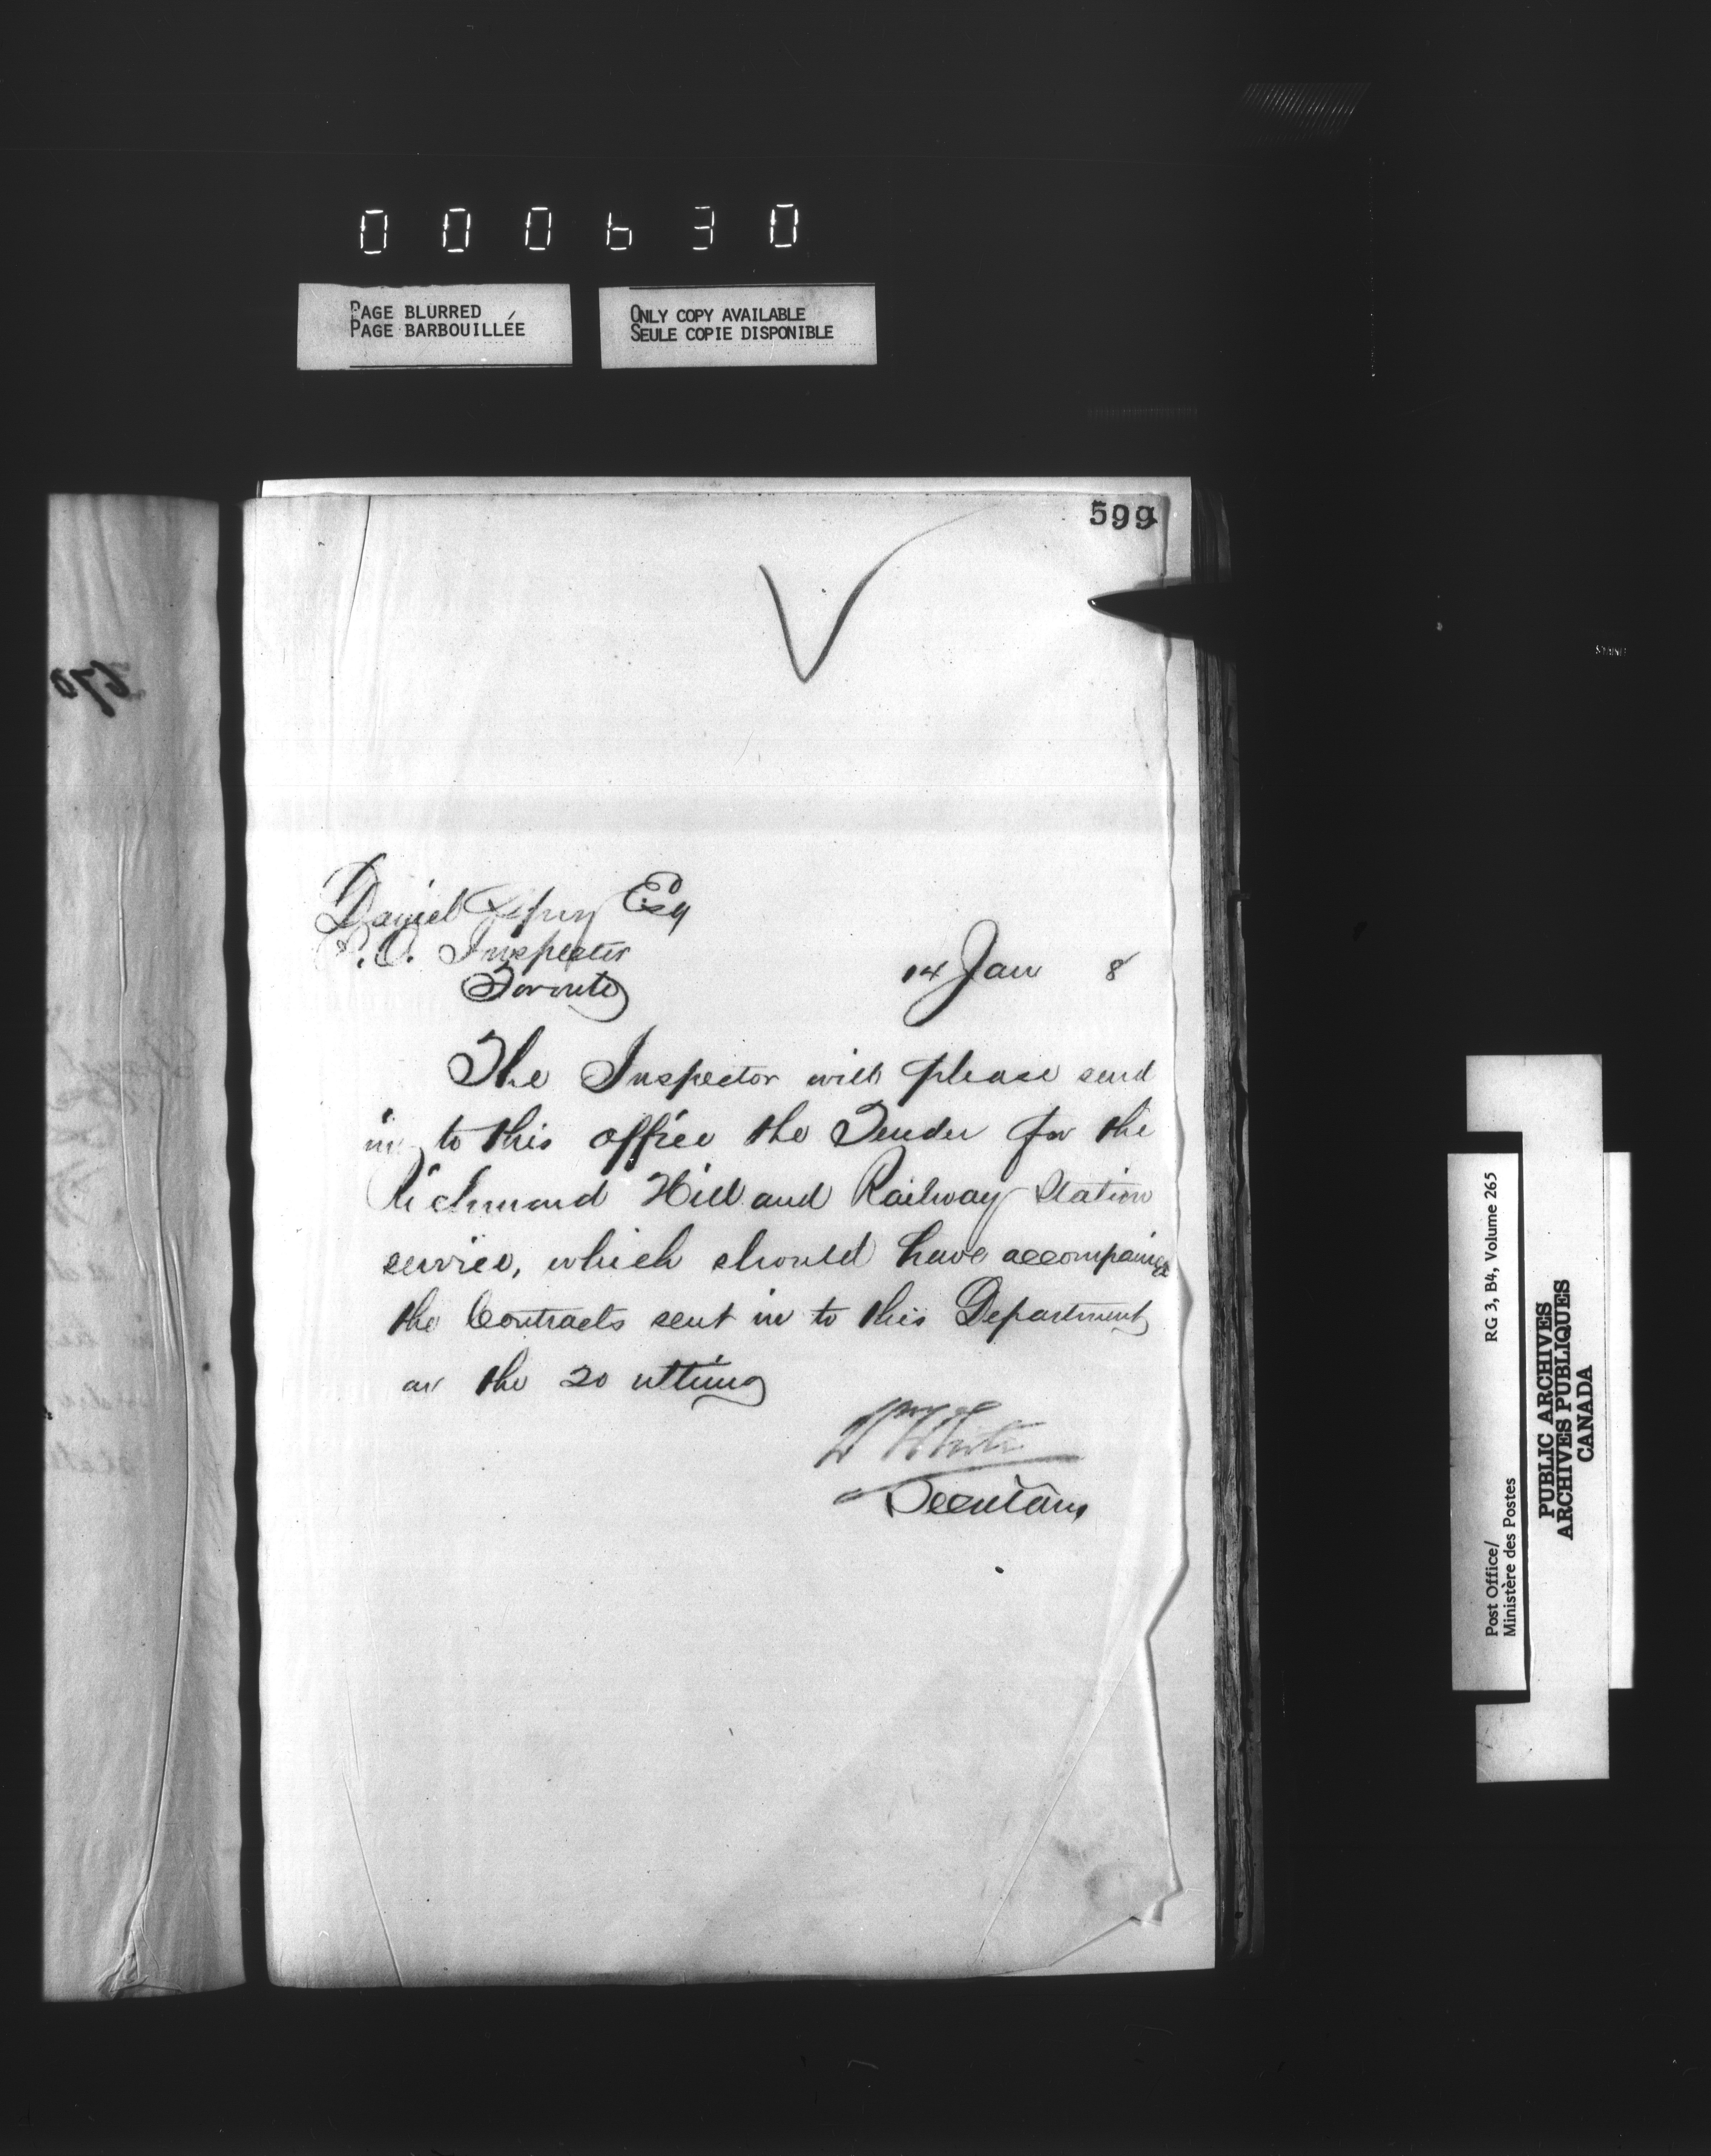 000630
PAGE BLURRED
PAGE BARBOUILLÉE
ONLY COPY AVAILABLE
SEULE COPIE DISPONIBLE
599
Daniel Esq
P.O. Inspector
Toronto
14 Jan 8
The Inspector will please send
in to this office the Tender for the
Richmond Hill and Railway Station
service, which should have accompanied
the Contracts sent in to this Department
on the 20 ultimo
White
Secretary
Post Office/
Ministère des Postes
RG 3, B4, Volume 265
PUBLIC ARCHIVES
ARCHIVES PUBLIQUES
CANADA